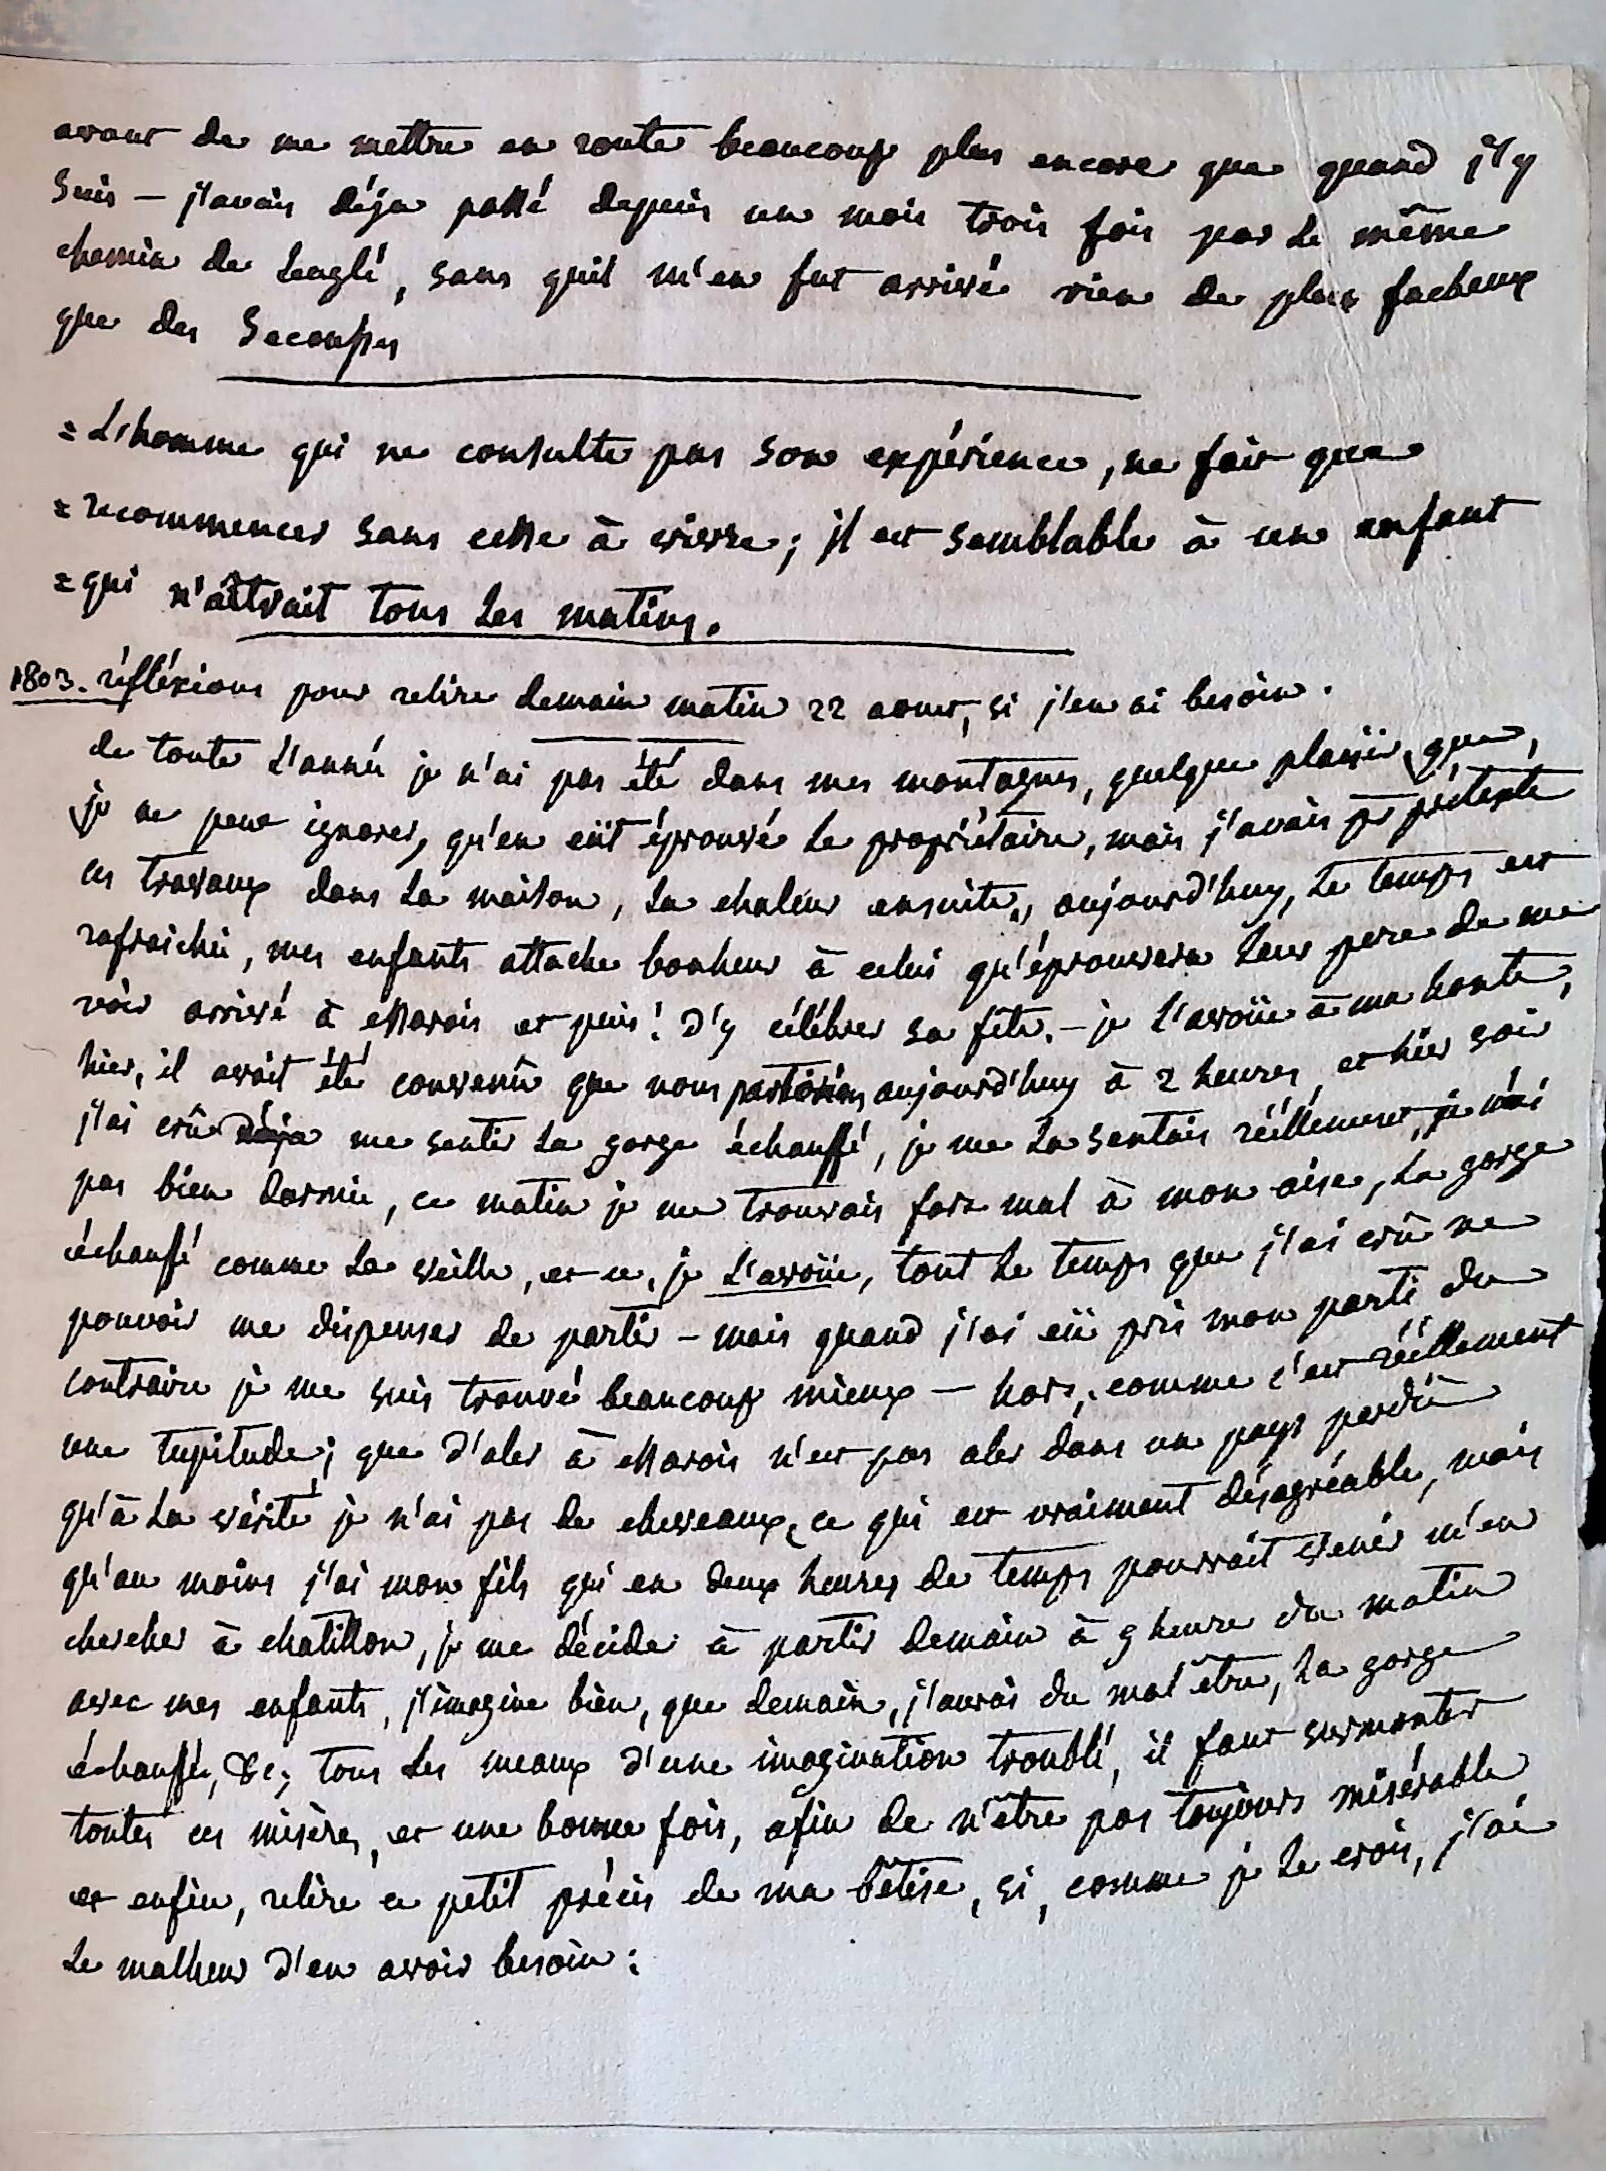 avant de me mettre en route beaucoup plus encore que quand j'y
suis — j'avais déja passé depuis un mois trois fois par le même
chemin de Leuglé, sans quil m'en fut arrivé rien de plus facheux
que des secousses
= L'homme qui ne consulte pas son expérience, ne fait que
= recommencer sans cesse à vivre; il est semblable à un enfant
= qui n'aîtrait tous les matins.
1803. réfléxions pour relire demain matin 22 aoust, si j'en ai besoin.
de toute l'année je n'ai pas été dans mes montagnes, quelque plaisir, que,
je ne peux ignorer, qu'en eüt éprouvé le propriétaire, mais j'avais pr prétexte
les travaux dans la maison, la chaleur ensuite, aujourd'huy, le temps est
rafraichi, mes enfants attache bonheur à celui qu'éprouvera leur pere de me
voir arrivé à essarois et puis! d'y célébrer sa fête. — je l'avoüe à ma honte,
hier, il avoit été convenû que nous partirions aujourd'huy à 2 heures, et hier soir
j'ai crû déja me sentir la gorge échauffé, je me la sentais réëllement, je n'ai
pas bien dormie, ce matin je me trouvais fort mal à mon aise, la gorge
échauffé comme la veille, et ce, je l'avoüe, tout le temps que j'ai crû ne
pouvoir me dispenser de partir — mais quand j'ai eü pris mon parti du
contraire je me suis trouvé beaucoup mieux — hors, comme c'est réëllement
une tupitude; que d'aler à essarois n'est pas aler dans un pays perdû
qu'à la vérité je n'ai pas de cheveaux, ce qui est vraiment désagréable, mais
qu'au moins j'ai mon fils qui en deux heures de temps pourrait venir m'en
chercher à chatillon, je me décide à partir demain à 9 heure du matin
avec mes enfants, j'imagine bien, que demain, j'aurai du mal être, la gorge
échauffé, &c; tous les meaux d'une imagination troublé, il faut surmonter
toutes ces misères, et une bonne fois, afin de n'être pas toujours misérable
et enfin, relire ce petit précis de ma bêtise, si, comme je le crois, j'ai
le malheur d'en avoir besoin: